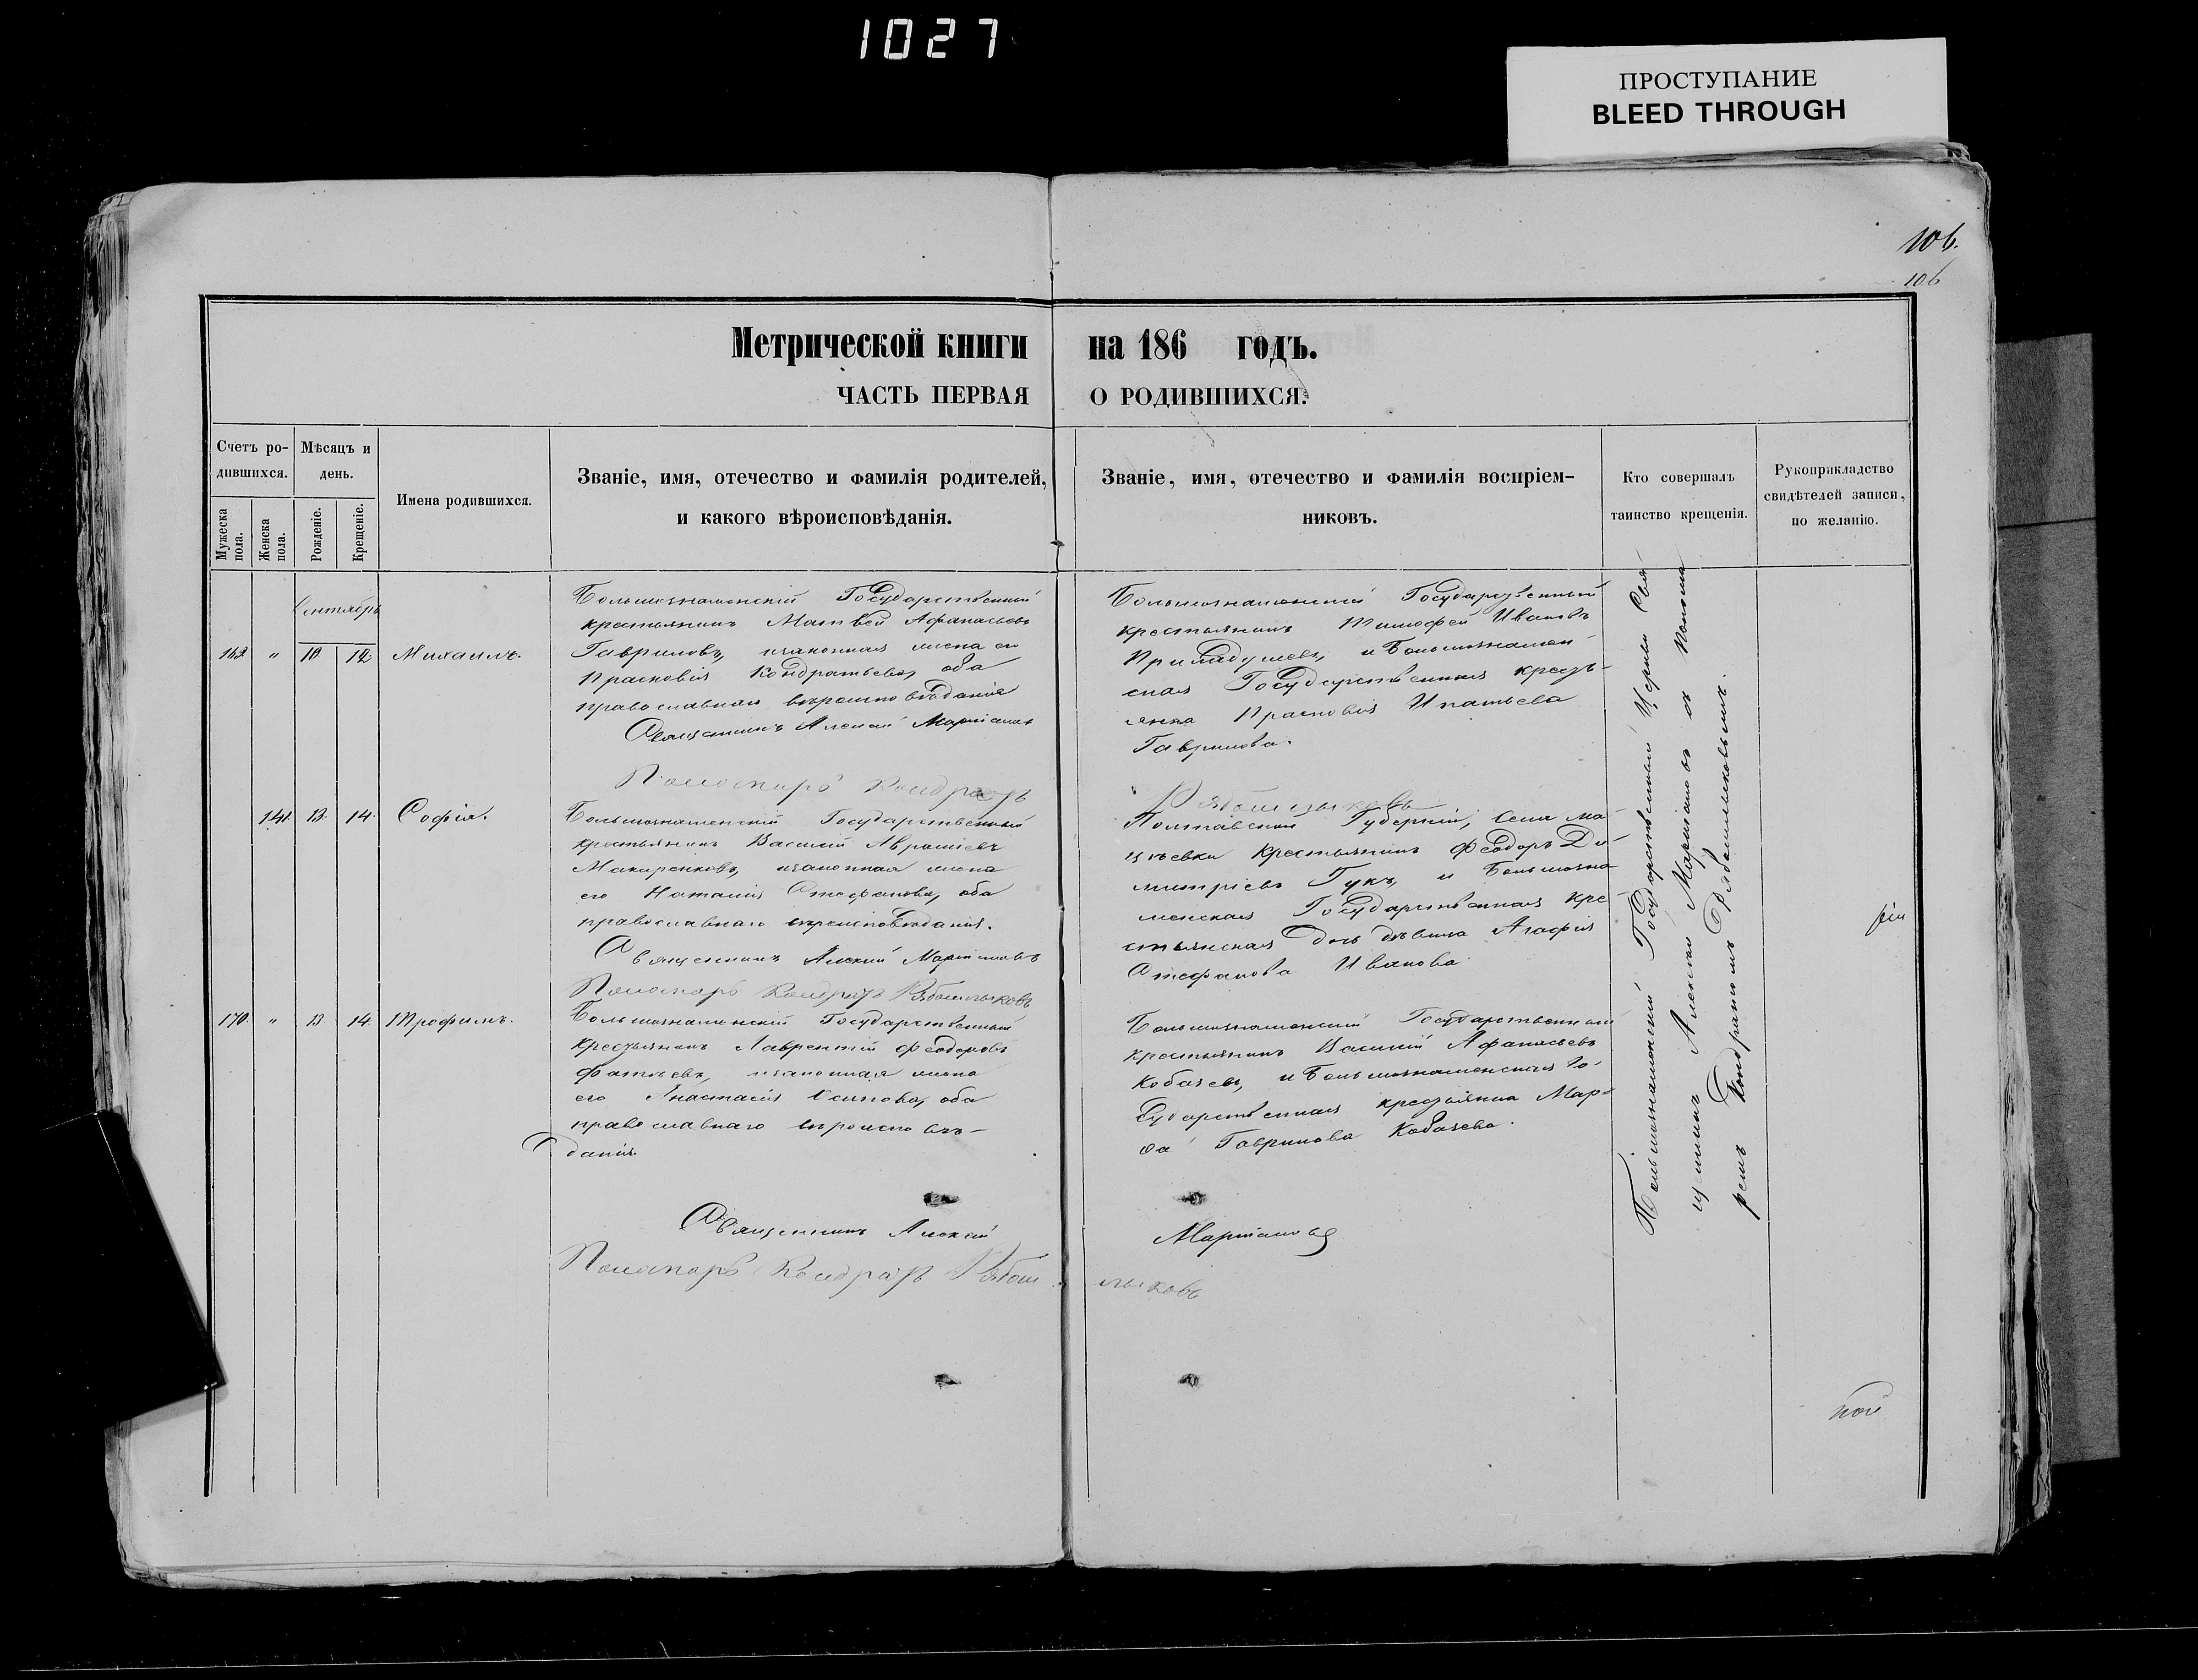 1027
ПРОСТУПАНИЕ
BLEED THROUGH
106.
106
Метрической книги на 186 годъ.
ЧАСТЬ ПЕРВАЯ О РОДИВШИХСЯ.
Счетъ ро-
дившихся.
Мужеска
пола.
Женска
пола.
Мѣсяцъ и
день.
Рожденіе.
Крещеніе.
Имена родившихся.
Званіе, имя, отечество и фамилія родителей,
и какого вѣроисповѣданія.
Званіе, имя, отечество и фамилія воспріем-
никовъ.
Кто совершалъ
таинство крещенія.
Рукоприкладство
свидѣтелей записи,
по желанію.
Сентябрь
" 10 12 Михаилъ.
Большезнаменскій Государственный
крестьянинъ Матвей Афанасьевъ
Гавриловъ, изаконная жена его
Прасковія Кондратьева, оба
православнаго вѣроисповѣданія
Священникъ Алексій Мартіановъ
Пономарь Кондратъ
Большезнаменскій Государственный
крестьянинъ Тимофей Ивановъ
и Большезнамен
ская Государственная кресть-
янка Прасковія Игнатьева
Гаврилова.
141. 13. 14. Софія.
Большезнаменскій Государственный
крестьянинъ Василій
Макаренковъ, изаконная жена
его Наталія Стефанова, оба
православнаго вѣроисповѣданія.
Священникъ Алексій Мартіановъ
Пономарь Кондратъ
Полтавской Губерніи, Села Ма-
крестьянинъ Феодоръ Ди
митріевъ Гукъ, и Большезна
менская Государственная кре
стьянская дочь дѣвица Агафія
Стефанова Иванова.
170. " 13. 14. Трофимъ.
Большезнаменскій Государственный
крестьянинъ Лаврентій Феодоровъ
Фатѣевъ, изаконная жена
его Анастасія Осипова, оба
православнаго вѣроисповѣ-
данія.
Большезнаменскій Государственный
крестьянинъ Василій Афанасьевъ
Кобазевъ, и Большезнаменская Го-
сударственная крестьянка Мар-
фа Гаврилова Кобазева.
Священникъ Алексій Мартіановъ
Пономарь Кондратъ
Большезнаменской Церкви Свя
щенникъ Алексій Мартіановъ съ Понома
ремъ Кондратомъ